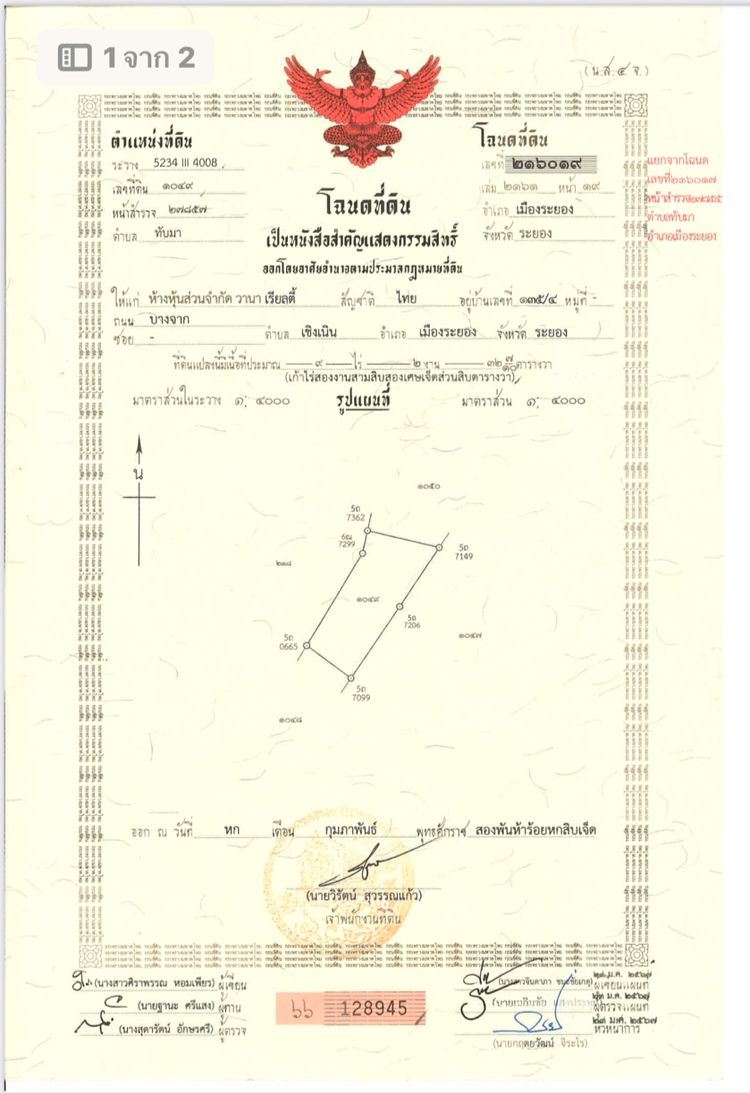 1 จาก 2
(น.ส.๔ จ.)
ตำแหน่งที่ดิน
ระวาง 5234 III 4008
เลขที่ดิน ๑๐๔๙
หน้าสำรวจ ๒๗๘๕๗
ตำบล ทับมา
โฉนดที่ดิน
เลขที่ ๒๑๖๐๑๙
เล่ม ๒๑๖๑ หน้า ๑๙
อำเภอ เมืองระยอง
จังหวัด ระยอง
แยกจากโฉนด
เลขที่๒๑๖๐๑๗
หน้าสำรวจ๒๗๘๕๕
ตำบลทับมา
อำเภอเมืองระยอง
โฉนดที่ดิน
เป็นหนังสือสำคัญแสดงกรรมสิทธิ์
ออกโดยอาศัยอำนาจตามประมวลกฎหมายที่ดิน
ให้แก่ ห้างหุ้นส่วนจำกัด วานา เรียลตี้ สัญชาติ ไทย อยู่บ้านเลขที่ ๑๓๕/๔ หมู่ที่ -
ถนน บางจาก
ซอย - ตำบล เชิงเนิน อำเภอ เมืองระยอง จังหวัด ระยอง
ที่ดินแปลงนี้มีเนื้อที่ประมาณ ๙ ไร่ ๒ งาน ๓๒ ๗/๑๐ ตารางวา
(เก้าไร่สองงานสามสิบสองเศษเจ็ดส่วนสิบตารางวา)
มาตราส่วนในระวาง ๑: ๔๐๐๐ รูปแผนที่ มาตราส่วน ๑: ๔๐๐๐
น
๑๐๕๐
5ถ
7362
6ฌ
7299
5ถ
7149
๒๑๘
๑๐๔๙
5ถ
7206
๑๐๔๗
5ถ
0665
5ถ
7099
๑๐๔๘
ออก ณ วันที่ หก เดือน กุมภาพันธ์ พุทธศักราช สองพันห้าร้อยหกสิบเจ็ด
(นายวิรัตน์ สุวรรณแก้ว)
เจ้าพนักงานที่ดิน
(นางสาวศิราพรรณ หอมเพียร) ผู้เขียน
(นายฐานะ ศรีแสง) ผู้ทาน
(นางสุดารัตน์ อักษรศรี) ผู้ตรวจ
๖๖ 128945
ผู้เขียนแผนที่
ผู้ตรวจแผนที่
๒๓ ม.ค. ๒๕๖๗
หัวหน้าการ
(นายกฤตยวัฒน์ จิระไร)